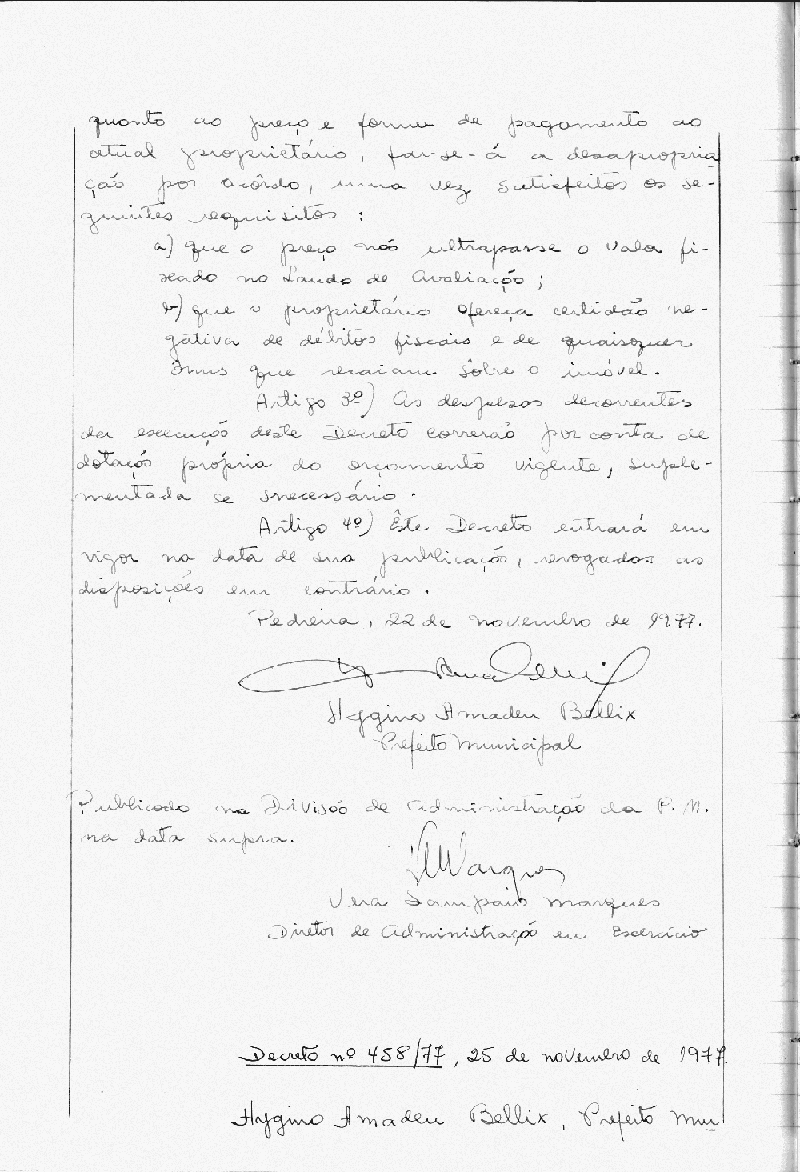 quanto ao preço e forma de pagamento ao
atual proprietário, far-se-á a desapropria
ção por acôrdo, uma vez satisfeitos os se-
guintes requisitos:
a) que o preço não ultrapasse o valor fi-
xado no Laudo de Avaliação;
b) que o proprietário ofereça certidão ne-
gativa de débitos fiscais e de quaisquer
ônus que recaiam sôbre o imóvel.
Artigo 3º) As despesas decorrentes
da execução deste Decreto correrão por conta de
dotação própria do orçamento vigente, suple-
mentada se necessário.
Artigo 4º) Êste Decreto entrará em
vigor na data de sua publicação, revogadas as
disposições em contrário.
Pedreira, 22 de novembro de 1977.
Hygino Amadeu Bellix
Prefeito Municipal
Publicado na Divisão de Administração da P. M.
na data supra.
VMarques
Vera Sampaio Marques
Diretor de Administração em Exercício
Decreto nº 458/77, 25 de novembro de 1977.
Hygino Amadeu Bellix, Prefeito Mun